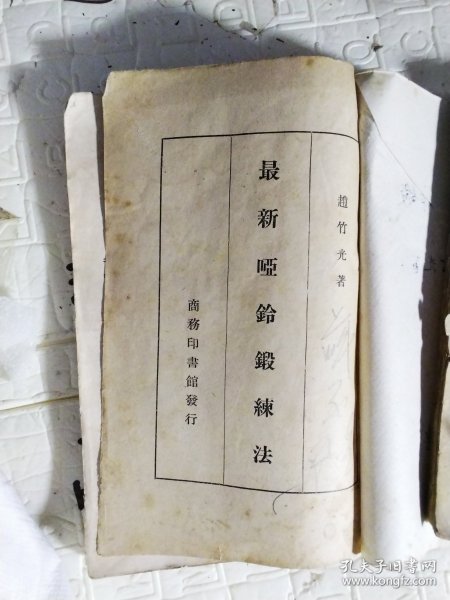 趙竹光著
最新啞鈴鍛練法
商務印書館發行
孔夫子旧书网
www.kongfz.com